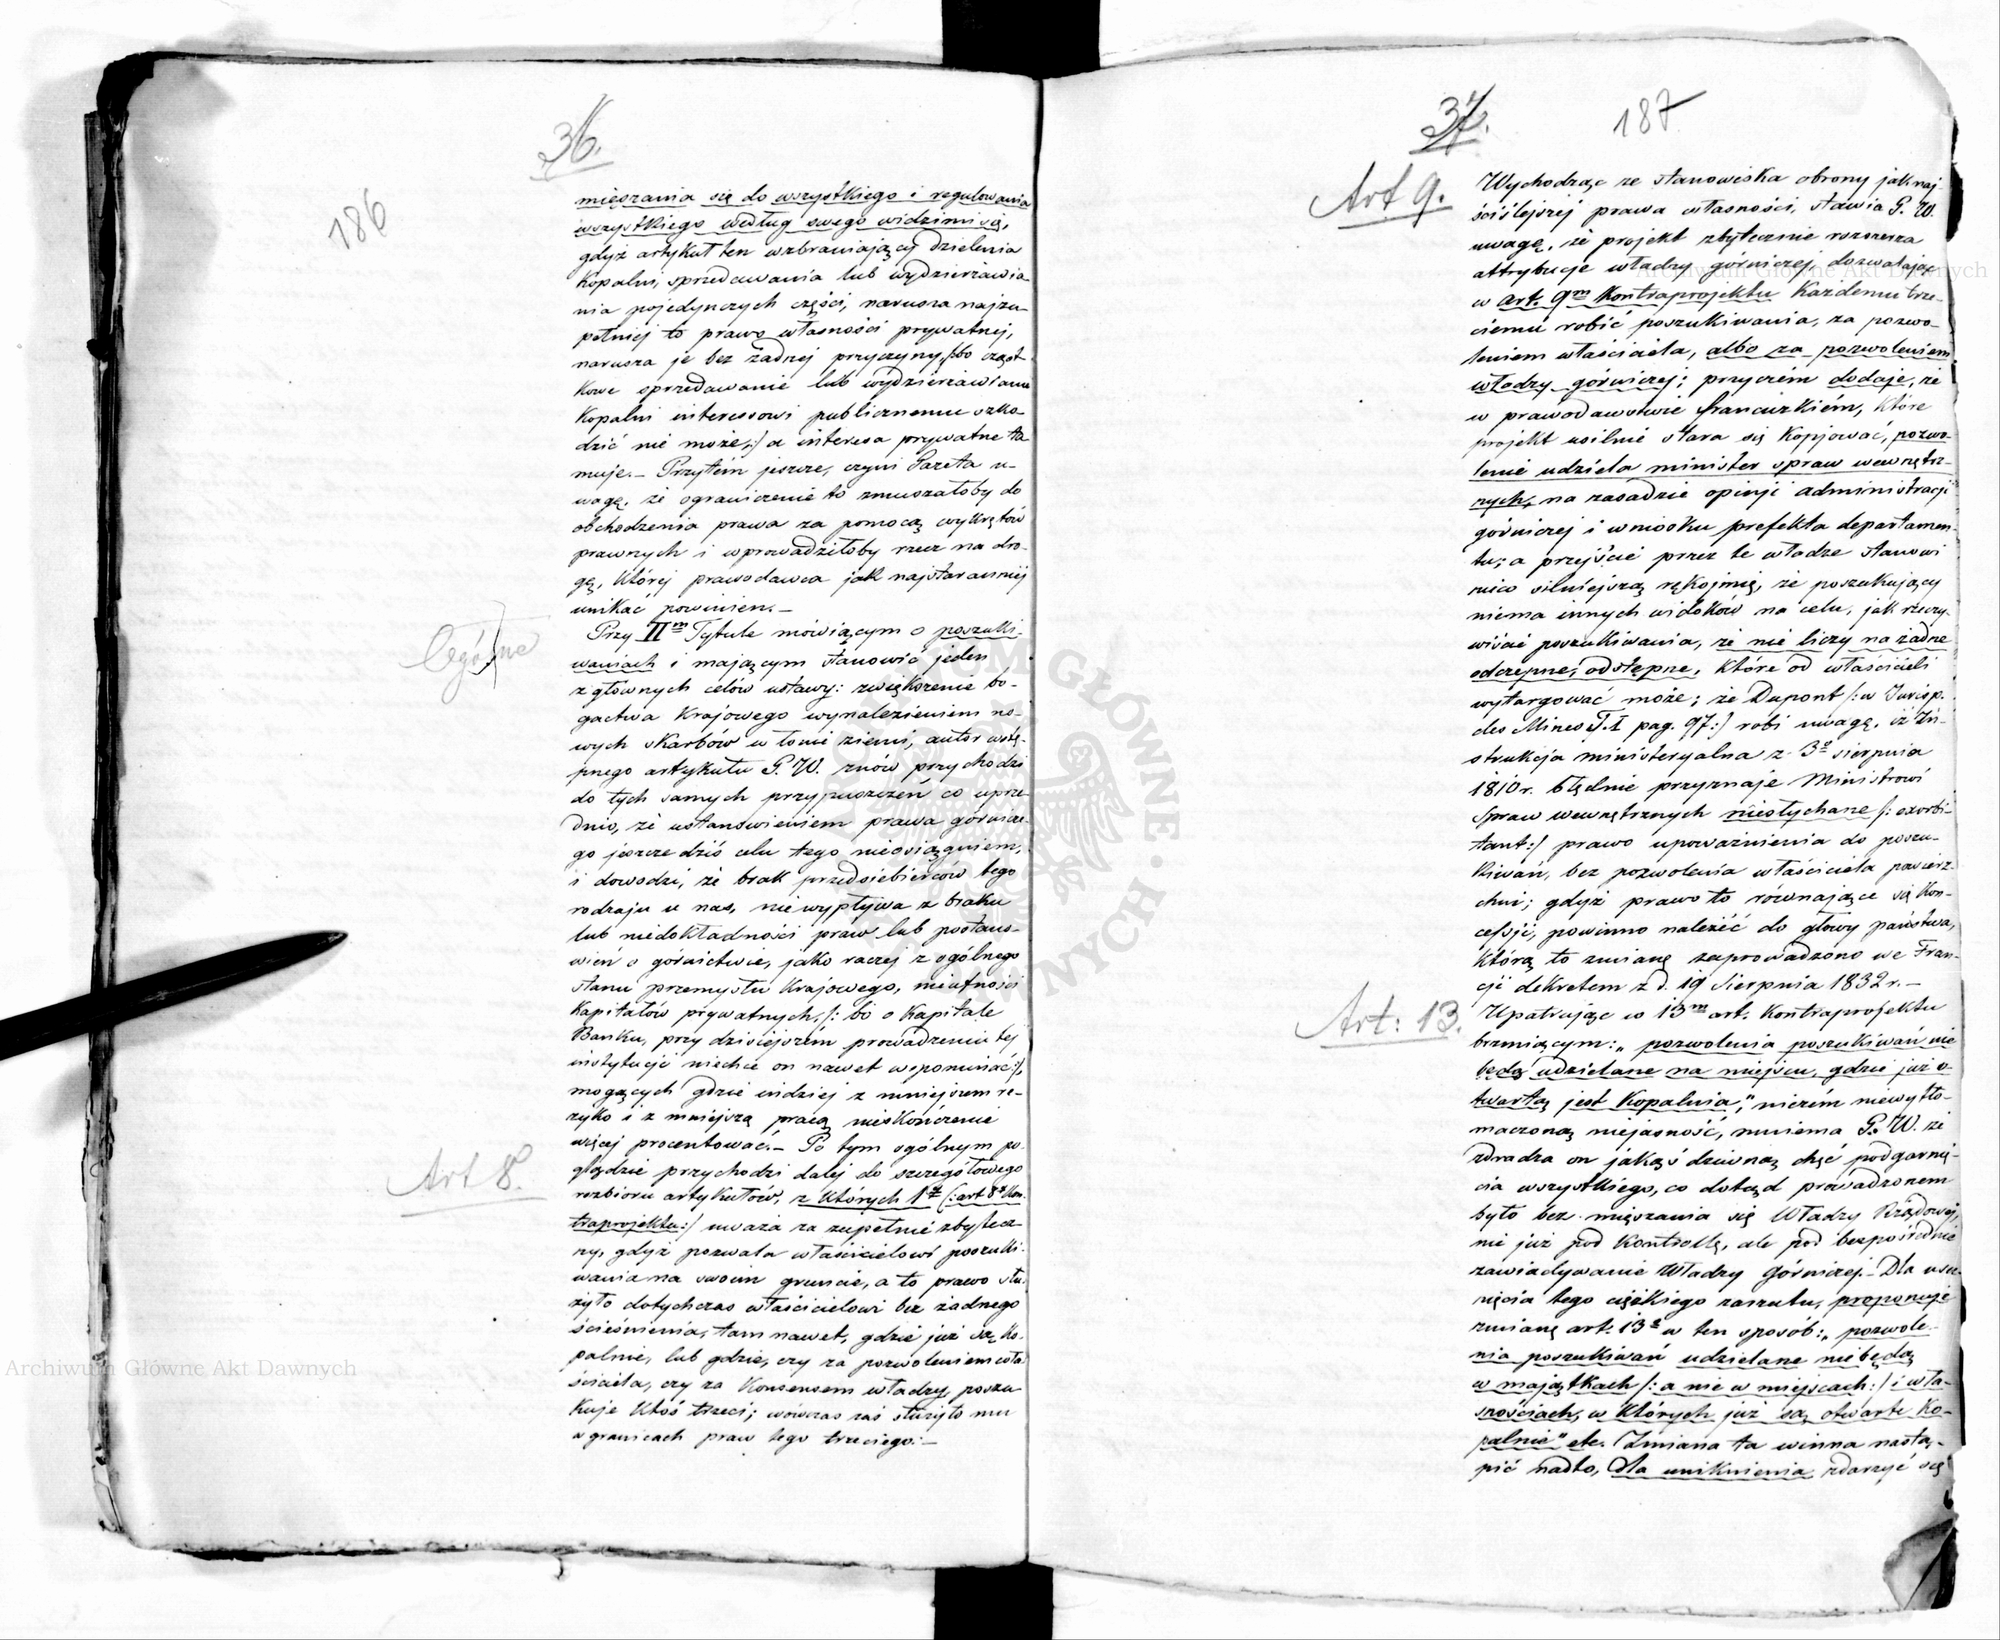 36.
186
mięszania się do wszystkiego i regulowania
wszystkiego według swego widzimisię,
gdyż artykuł ten wzbraniający dzielenia
Kopalni, sprzedawania lub wydzierżawia-
nia pojedynczych części, narusza najzu-
pełniej to prawo własności prywatnej,
narusza je bez żadnej przyczyny, /:bo cząst-
kowe sprzedawanie lub wydzierżawianie
Kopalni interesowi publicznemu szko-
dzić nie może,:/ a interesa prywatne ta-
muje.— Przytém jeszcze, czyni Gazeta u-
wagę, że ograniczenie to zmuszałoby do
obchodzenia prawa za pomocą wykrętów
prawnych i wprowadziłoby rzecz na dro-
gę, której prawodawca jak najstaranniej
unikać powinien.—
Ogólne
Przy IIm Tytule mówiącym o poszuki-
waniach i mającym stanowić jeden
z głównych celów ustawy: zwiększenie bo-
gactwa Krajowego wynalezieniem no-
wych skarbów w łonie ziemi, autor wstę-
pnego artykułu G. W. znów przychodzi
do tych samych przypuszczeń co uprze-
dnio, że ustanowieniem prawa górnicze-
go jeszcze dziś celu tego nieosiągniem,
i dowodzi, że brak przedsiebierców tego
rodzaju u nas, nie wypływa z braku
lub niedokładności praw lub postano-
wień o górnictwie, jako raczej z ogólnego
stanu przemysłu Krajowego, nieufności
Kapitałów prywatnych, /: bo o Kapitale
Banku, przy dzisiejszém prowadzeniu tej
instytucji niechce on nawet wspominać:/,
mogących gdzie indziej z mniejszem re-
zyko i z mniejszą pracą nieskończenie
więcej procentować.— Po tym ogólnym po-
glądzie przychodzi dalej do szczegółowego
Art 8.
rozbioru artykułów, z których 1y /:art 8y Kon-
traprojektu:/ uważa za zupełnie zbytecz-
ny, gdyż pozwala właścicielowi poszuki-
wania na swoim gruncie, a to prawo słu-
żyło dotychczas właścicielowi bez żadnego
ścieśnienia, tam nawet, gdzie już są Ko-
palnie, lub gdzie, czy za pozwoleniem wła-
ściciela, czy za Konsensem władzy, poszu-
kuje Ktoś trzeci; wówczas zaś służyło mu
w granicach praw tego trzeciego.—
37.
187
Art 9.
Wychodząc ze stanowiska obrony jaknaj-
ściślejszej prawa własności, stawia G. W.
uwagę, że projekt zbytecznie rozszerza
attrybucje władzy górniczej, dozwalając
w art. 9m Kontraprojektu Każdemu trze-
ciemu robić poszukiwania, za pozwo-
leniem właściciela, albo za pozwoleniem
władzy górniczej; przyczém dodaje, że
w prawodawstwie francuzkiém, które
projekt usilnie stara się Kopjować, pozwo-
lenie udziela minister spraw wewnętrz-
nych, na zasadzie opinji administracji
górniczej i wniosku prefekta departamen-
tu; a przejście przez te władze stanowi
nieco silniejszą rękojmię, że poszukujący
niema innych widoków na celu, jak rzeczy-
wiście poszukiwania, że nie liczy na żadne
odczepne, odstępne, które od właścicieli
wytargować może; że Dupont /: w Jurisp.
des Mines T. I pag. 97:/ robi uwagę, iż In-
strukcja ministeryalna z 3o sierpnia
1810 r. błędnie przyznaje Ministrowi
Spraw wewnętrznych niesłychane /: exorbi-
tant:/ prawo upoważnienia do poszu-
kiwań, bez pozwolenia właściciela powierz-
chni; gdyż prawo to równające się Kon-
cessji, powinno należéć do głowy państwa,
którą to zmianę zaprowadzono we Fran-
cji dekretem z d. 19 Sierpnia 1832 r.—
Art: 13.
Upatrując w 13m art. Kontraprojektu
brzmiącym: „pozwolenia poszukiwań nie
będą udzielane na miejscu, gdzie już o-
twartą jest Kopalnia", niczém niewytło-
maczoną niejasność, mniema G. W. że
zdradza on jakąś dziwną chęć podgarnię-
cia wszystkiego, co dotąd prowadzonem
było bez mięszania się Władzy Rządowej,
nie już pod Kontrollę, ale pod bezpośrednie
zawiadywanie Władzy Górniczej.— Dla usu-
nięcia tego ciężkiego zarzutu, proponuje
zmianę art. 13o w ten sposób: „pozwole-
nia poszukiwań udzielane nie będą
w majątkach /: a nie w miejscach:/ i wła-
snościach, w których już są otwarte Ko-
palnie" etc. Zmiana ta winna nastą-
pić nadto, dla uniknienia zdarzyć się
Archiwum Główne Akt Dawnych
Archiwum Główne Akt Dawnych